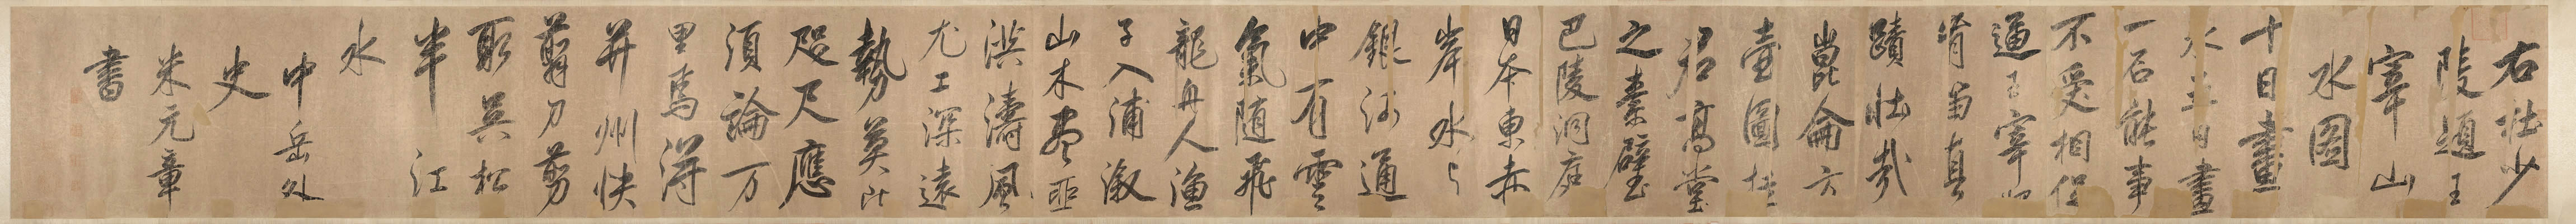 右杜少
陵題王
宰山
水圖
十日畫
水五日畫
一石能事
不受相促
逼王宰始
肯留真
蹟壯哉
崑崙方
壺圖挂
君高堂
之素壁
巴陵洞庭
日本東赤
岸水与
銀河通
中有雲
氣随飛
龍舟人漁
子入浦溆
山木盡亞
洪濤風
尤工深遠
勢莫比
咫尺應
須論万
里焉得
并州快
翦刀剪
取吳松
半江
水
中岳外
史
米元章
書